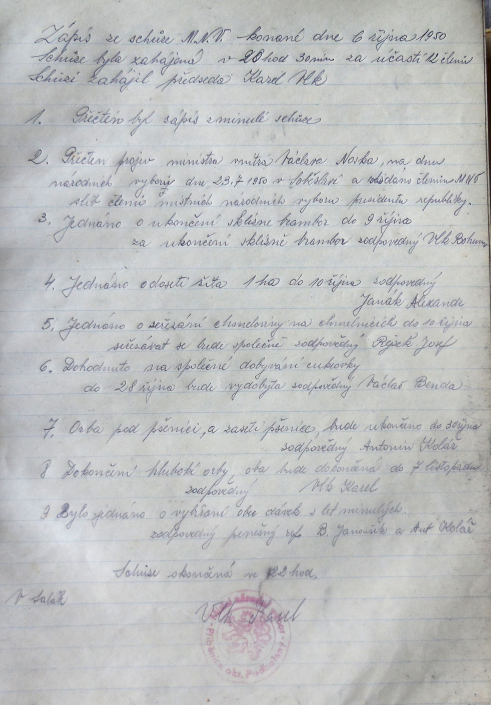 Zápis ze schůze M.N.V. konané dne 6 října 1950
Schůze byla zahájená v 20 hod 30 min za účasti 12 členů
Schůzi zahájil předseda Karel Vlk
1. Přečten byl zápis z minulé schůze
2. Přečten projev ministra vnitra Václava Noska, na dnu
národních výborů dne 23.7 1950 v a členům MNV
slib členů místních národních výborů presidentu republiky.
3. Jednáno o ukončení sklizně brambor do 9 října
za ukončení sklizně brambor zodpovědný Vlk Bohum
4. Jednáno o dosetí žita 1 ha do 10 října zodpovědný
Janák Alexandr
5. Jednáno o seřezání na chmelnicích do 10 října
seřezávat se bude společně zodpovědný Josef
6. Dohodnuto na společné dobývání cukrovky
do 28 října bude vydobyta zodpovědný Václav Benda
7. Orba pod pšenici, a zasetí pšenice, bude ukončeno do října
zodpovědný Antonín Kolář
8 Dokončení hluboké orby, oba bude dokončená do 7 listopadu
zodpovědný Vlk Karel
9 Bylo jednáno o vybírání obec dávek z let minulých.
zodpovědný peněžný ref B. Janoušek a Ant Kolář
Schůze skončená ve 22 hod.
Vlk Karel